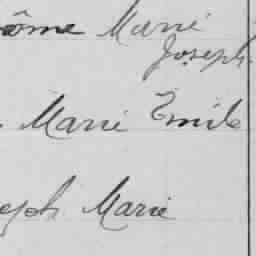 ôme Marie
Joseph.
Marie Emile
eph Marie